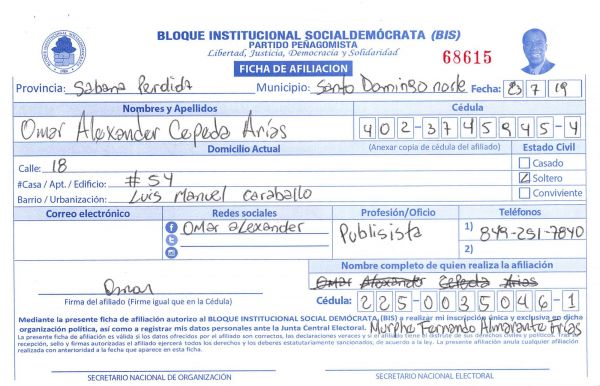 BLOQUE INSTITUCIONAL SOCIALDEMÓCRATA (BIS)
PARTIDO PEÑAGOMISTA
Libertad, Justicia, Democracia y Solidaridad
68615
FICHA DE AFILIACION
Provincia: Sabana Perdida Municipio: Santo Domingo norte Fecha: 23 7 19
Nombres y Apellidos Cédula
Omar Alexander Cepeda Arias 402-3745945-4
Domicilio Actual (Anexar copia de cédula del afiliado) Estado Civil
Calle: 18 Casado
#Casa / Apt. / Edificio: #54 Soltero
Barrio / Urbanización: Luis Manuel Caraballo Conviviente
Correo electrónico Redes sociales Profesión/Oficio Teléfonos
Omar alexander Publisista 1) 849-251-7840
2)
Nombre completo de quien realiza la afiliación
Omar Omar Alexander Cepeda Arias
Firma del afiliado (Firme igual que en la Cédula) Cédula: 225-0035046-1
Mediante la presente ficha de afiliación autorizo al BLOQUE INSTITUCIONAL SOCIAL DEMÓCRATA (BIS) a realizar mi inscripción única y exclusiva en dicha
organización política, así como a registrar mis datos personales ante la Junta Central Electoral. Murphe Fernando Almarante Frias
La presente ficha de afiliación es válida si los datos ofrecidos por el afiliado son correctos, las declaraciones veraces y si el afiliado tiene el disfrute de sus derechos civiles y políticos. Tras su
recepción, sello y firmas autorizadas el afiliado ejercerá todos los derechos y los deberes estatutariamente sancionados, de acuerdo a la ley. La presente afiliación anula cualquier afiliación
realizada con anterioridad a la fecha que aparece en esta ficha.
SECRETARIO NACIONAL DE ORGANIZACIÓN SECRETARIO NACIONAL ELECTORAL